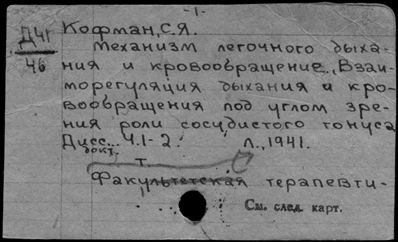 -1.
Д41
46
Кофман, С.Я.
Механизм легочного дыха-
ния и кровообращение. Взаи-
морегуляция дыхания и кро-
вообращения под углом зре-
ния роли сосудистого тонуса
Дисс... Ч.1-2. Л., 1941.
докт.
Т.
Факультетская терапевти-
См. след. карт.